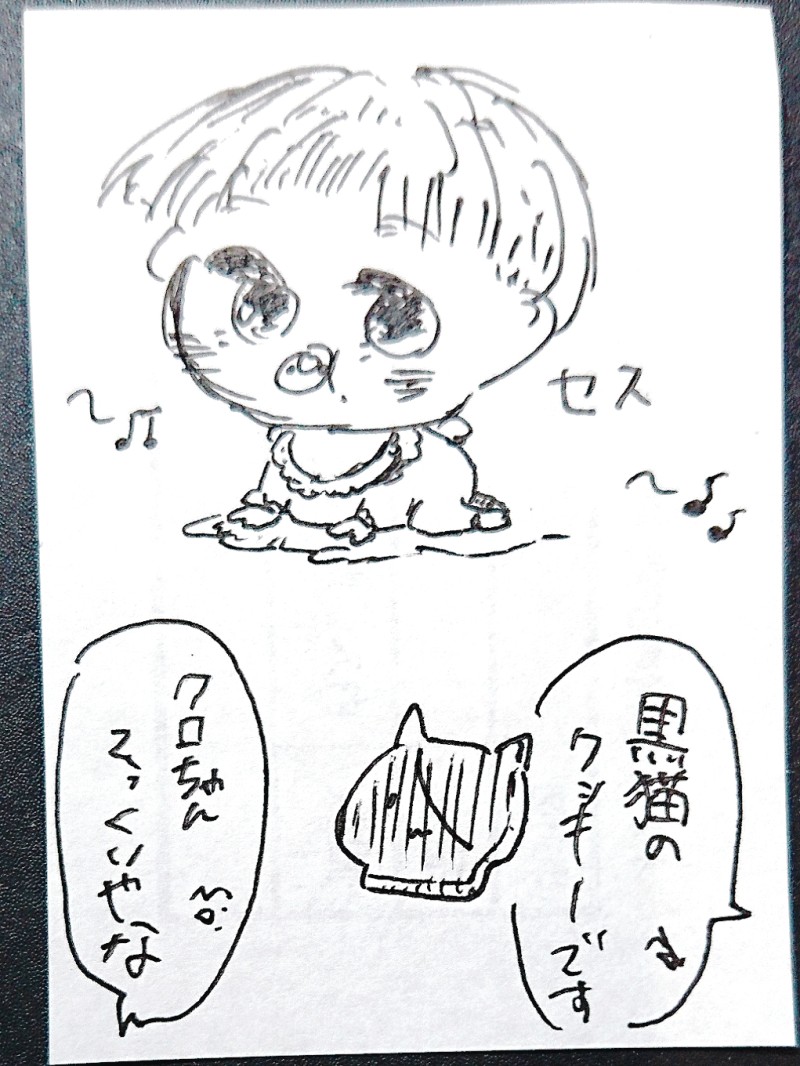 セス
黒猫の
クッキーです
クロちゃん
そっくりやな